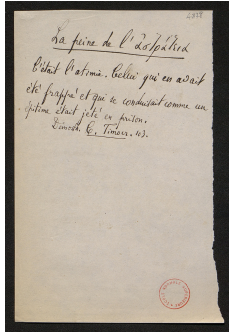 La peine de l'
C'était l'atimie. Celui qui en avait
été frappé et qui se conduisait comme un
épitime était jeté en prison.
Démosth. C. Timocr. 103.